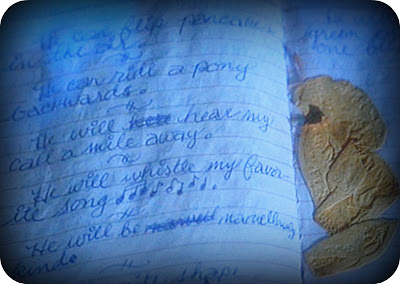 He can flip pancakes
in the air.
He can ride a pony
backwards.
He will hear my
call a mile away.
He will whistle my favor-
ite song
He will be marvellously
kind.
green
one